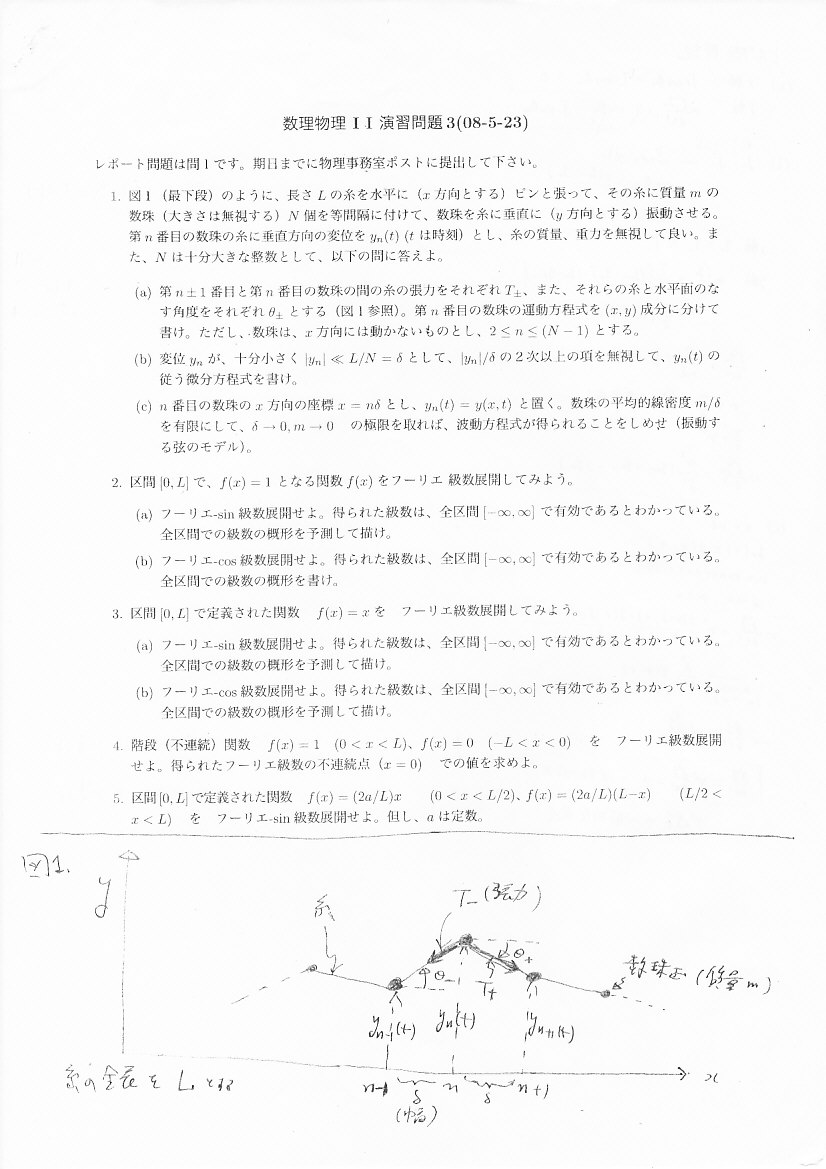 数理物理 I I 演習問題 3(08-5-23)
レポート問題は問1です。期日までに物理事務室ポストに提出して下さい。
1. 図1(最下段)のように、長さ L の糸を水平に(x 方向とする)ピンと張って、その糸に質量 m の
数珠(大きさは無視する)N 個を等間隔に付けて、数珠を糸に垂直に(y 方向とする)振動させる。
第 n 番目の数珠の糸に垂直方向の変位を yₙ(t) (t は時刻)とし、糸の質量、重力を無視して良い。ま
た、N は十分大きな整数として、以下の問に答えよ。
(a) 第 n ± 1 番目と第 n 番目の数珠の間の糸の張力をそれぞれ T±、また、それらの糸と水平面のな
す角度をそれぞれ θ± とする(図1参照)。第 n 番目の数珠の運動方程式を (x, y) 成分に分けて
書け。ただし、数珠は、x 方向には動かないものとし、2 ≤ n ≤ (N − 1) とする。
(b) 変位 yₙ が、十分小さく |yₙ| ≪ L/N = δ として、|yₙ|/δ の2次以上の項を無視して、yₙ(t) の
従う微分方程式を書け。
(c) n 番目の数珠の x 方向の座標 x = nδ とし、yₙ(t) = y(x, t) と置く。数珠の平均的線密度 m/δ
を有限にして、δ → 0, m → 0 の極限を取れば、波動方程式が得られることをしめせ(振動す
る弦のモデル)。
2. 区間 [0, L] で、f(x) = 1 となる関数 f(x) をフーリエ 級数展開してみよう。
(a) フーリエ-sin 級数展開せよ。得られた級数は、全区間 [−∞, ∞] で有効であるとわかっている。
全区間での級数の概形を予測して描け。
(b) フーリエ-cos 級数展開せよ。得られた級数は、全区間 [−∞, ∞] で有効であるとわかっている。
全区間での級数の概形を書け。
3. 区間 [0, L] で定義された関数 f(x) = x を フーリエ級数展開してみよう。
(a) フーリエ-sin 級数展開せよ。得られた級数は、全区間 [−∞, ∞] で有効であるとわかっている。
全区間での級数の概形を予測して描け。
(b) フーリエ-cos 級数展開せよ。得られた級数は、全区間 [−∞, ∞] で有効であるとわかっている。
全区間での級数の概形を予測して描け。
4. 階段(不連続)関数 f(x) = 1 (0 < x < L)、f(x) = 0 (−L < x < 0) を フーリエ級数展開
せよ。得られたフーリエ級数の不連続点 (x = 0) での値を求めよ。
5. 区間 [0, L] で定義された関数 f(x) = (2a/L)x (0 < x < L/2)、f(x) = (2a/L)(L−x) (L/2 <
x < L) を フーリエ-sin 級数展開せよ。但し、a は定数。
図1.
y
糸
T₋(張力)
θ₋
θ₊
T₊
数珠玉(質量 m)
yₙ₋₁(t) yₙ(t) yₙ₊₁(t)
x
糸の全長を L とする
n-1 n n+1
δ δ
(間隔)